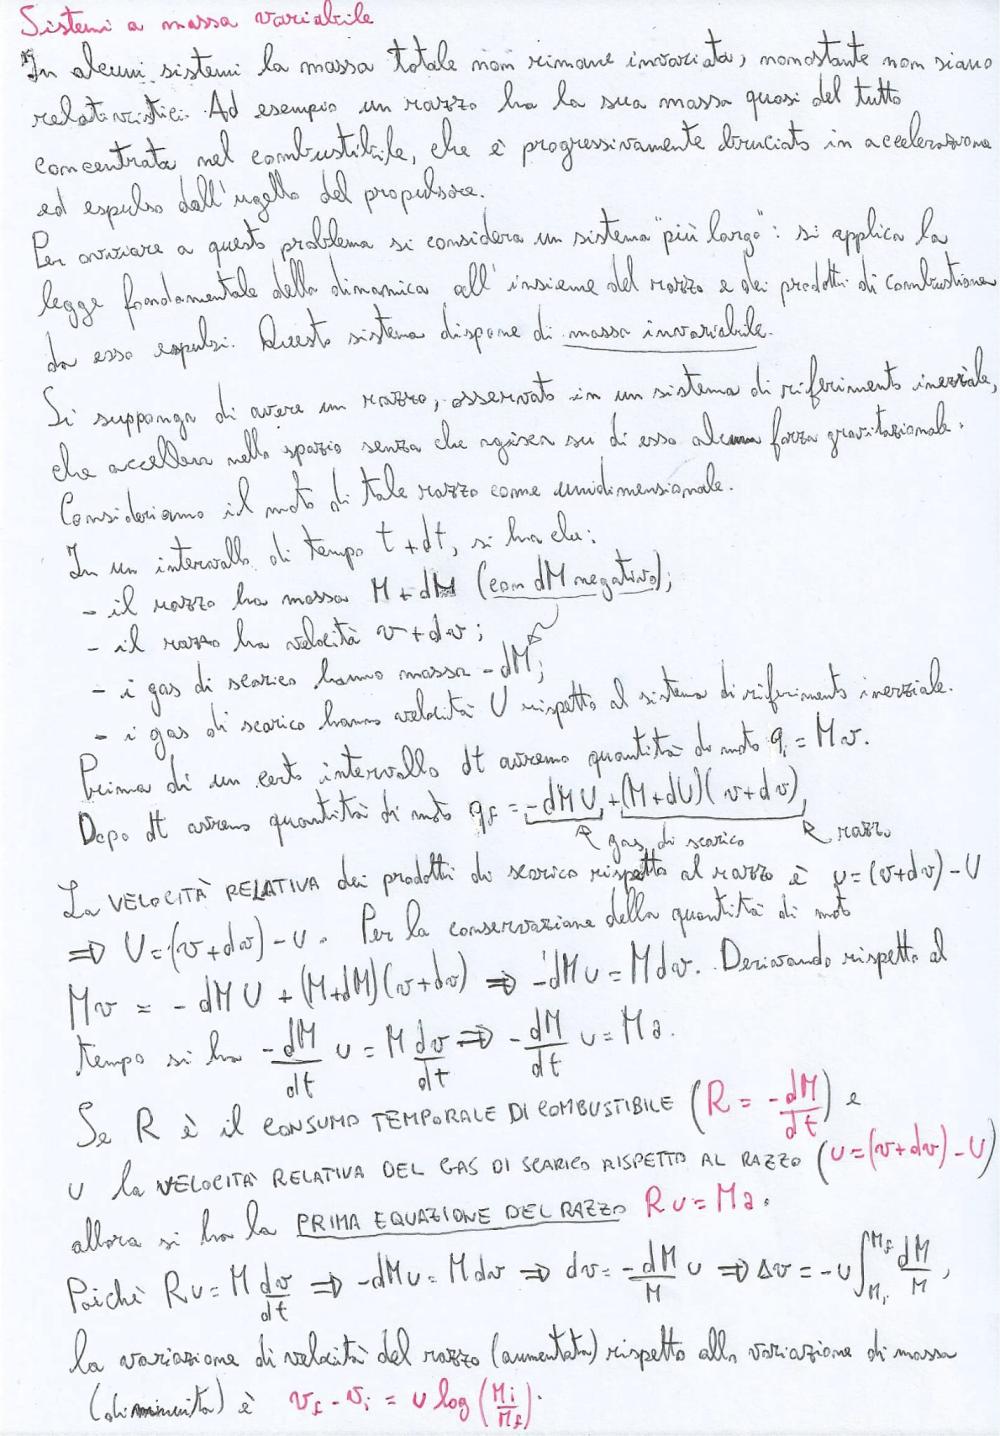 Sistemi a massa variabile
In alcuni sistemi la massa totale non rimane invariata, nonostante non siano
relativistici. Ad esempio un razzo ha la sua massa quasi del tutto
concentrata nel combustibile, che è progressivamente bruciato in accelerazione
ed espulso dall'ugello del propulsore.
Per ovviare a questo problema si considera un sistema "più largo": si applica la
legge fondamentale della dinamica all'insieme del razzo e dei prodotti di combustione
da esso espulsi. Questo sistema dispone di massa invariabile.
Si supponga di avere un razzo, osservato in un sistema di riferimento inerziale,
che accellera nello spazio senza che agisca su di esso alcuna forza gravitazionale.
Consideriamo il moto di tale razzo come unidimensionale.
In un intervallo di tempo t+dt, si ha che:
- il razzo ha massa M+dM (con dM negativo);
- il razzo ha velocità v+dv;
- i gas di scarico hanno massa -dM;
- i gas di scarico hanno velocità U rispetto al sistema di riferimento inerziale.
Prima di un certo intervallo dt avremo quantità di moto qᵢ = Mv.
Dopo dt avremo quantità di moto q_f = -dMU + (M+dU)(v+dv)
gas di scarico razzo
La VELOCITÀ RELATIVA dei prodotti di scarico rispetto al razzo è u=(v+dv)-U
⇒ U=(v+dv)-u. Per la conservazione della quantità di moto
Mv = -dMU + (M+dM)(v+dv) ⇒ -dMu = Mdv. Derivando rispetto al
tempo si ha -dM/dt u = M dv/dt ⇒ -dM/dt u = Ma.
Se R è il CONSUMO TEMPORALE DI COMBUSTIBILE (R = -dM/dt) e
u la VELOCITÀ RELATIVA DEL GAS DI SCARICO RISPETTO AL RAZZO (u=(v+dv)-U)
allora si ha la PRIMA EQUAZIONE DEL RAZZO Ru=Ma.
Poichè Ru=M dv/dt ⇒ -dMu=Mdv ⇒ dv=-dM/M u ⇒ Δv=-u∫_{Mᵢ}^{M_f} dM/M,
la variazione di velocità del razzo (aumentata) rispetto alla variazione di massa
(diminuita) è v_f - vᵢ = u log(Mi/M_f).